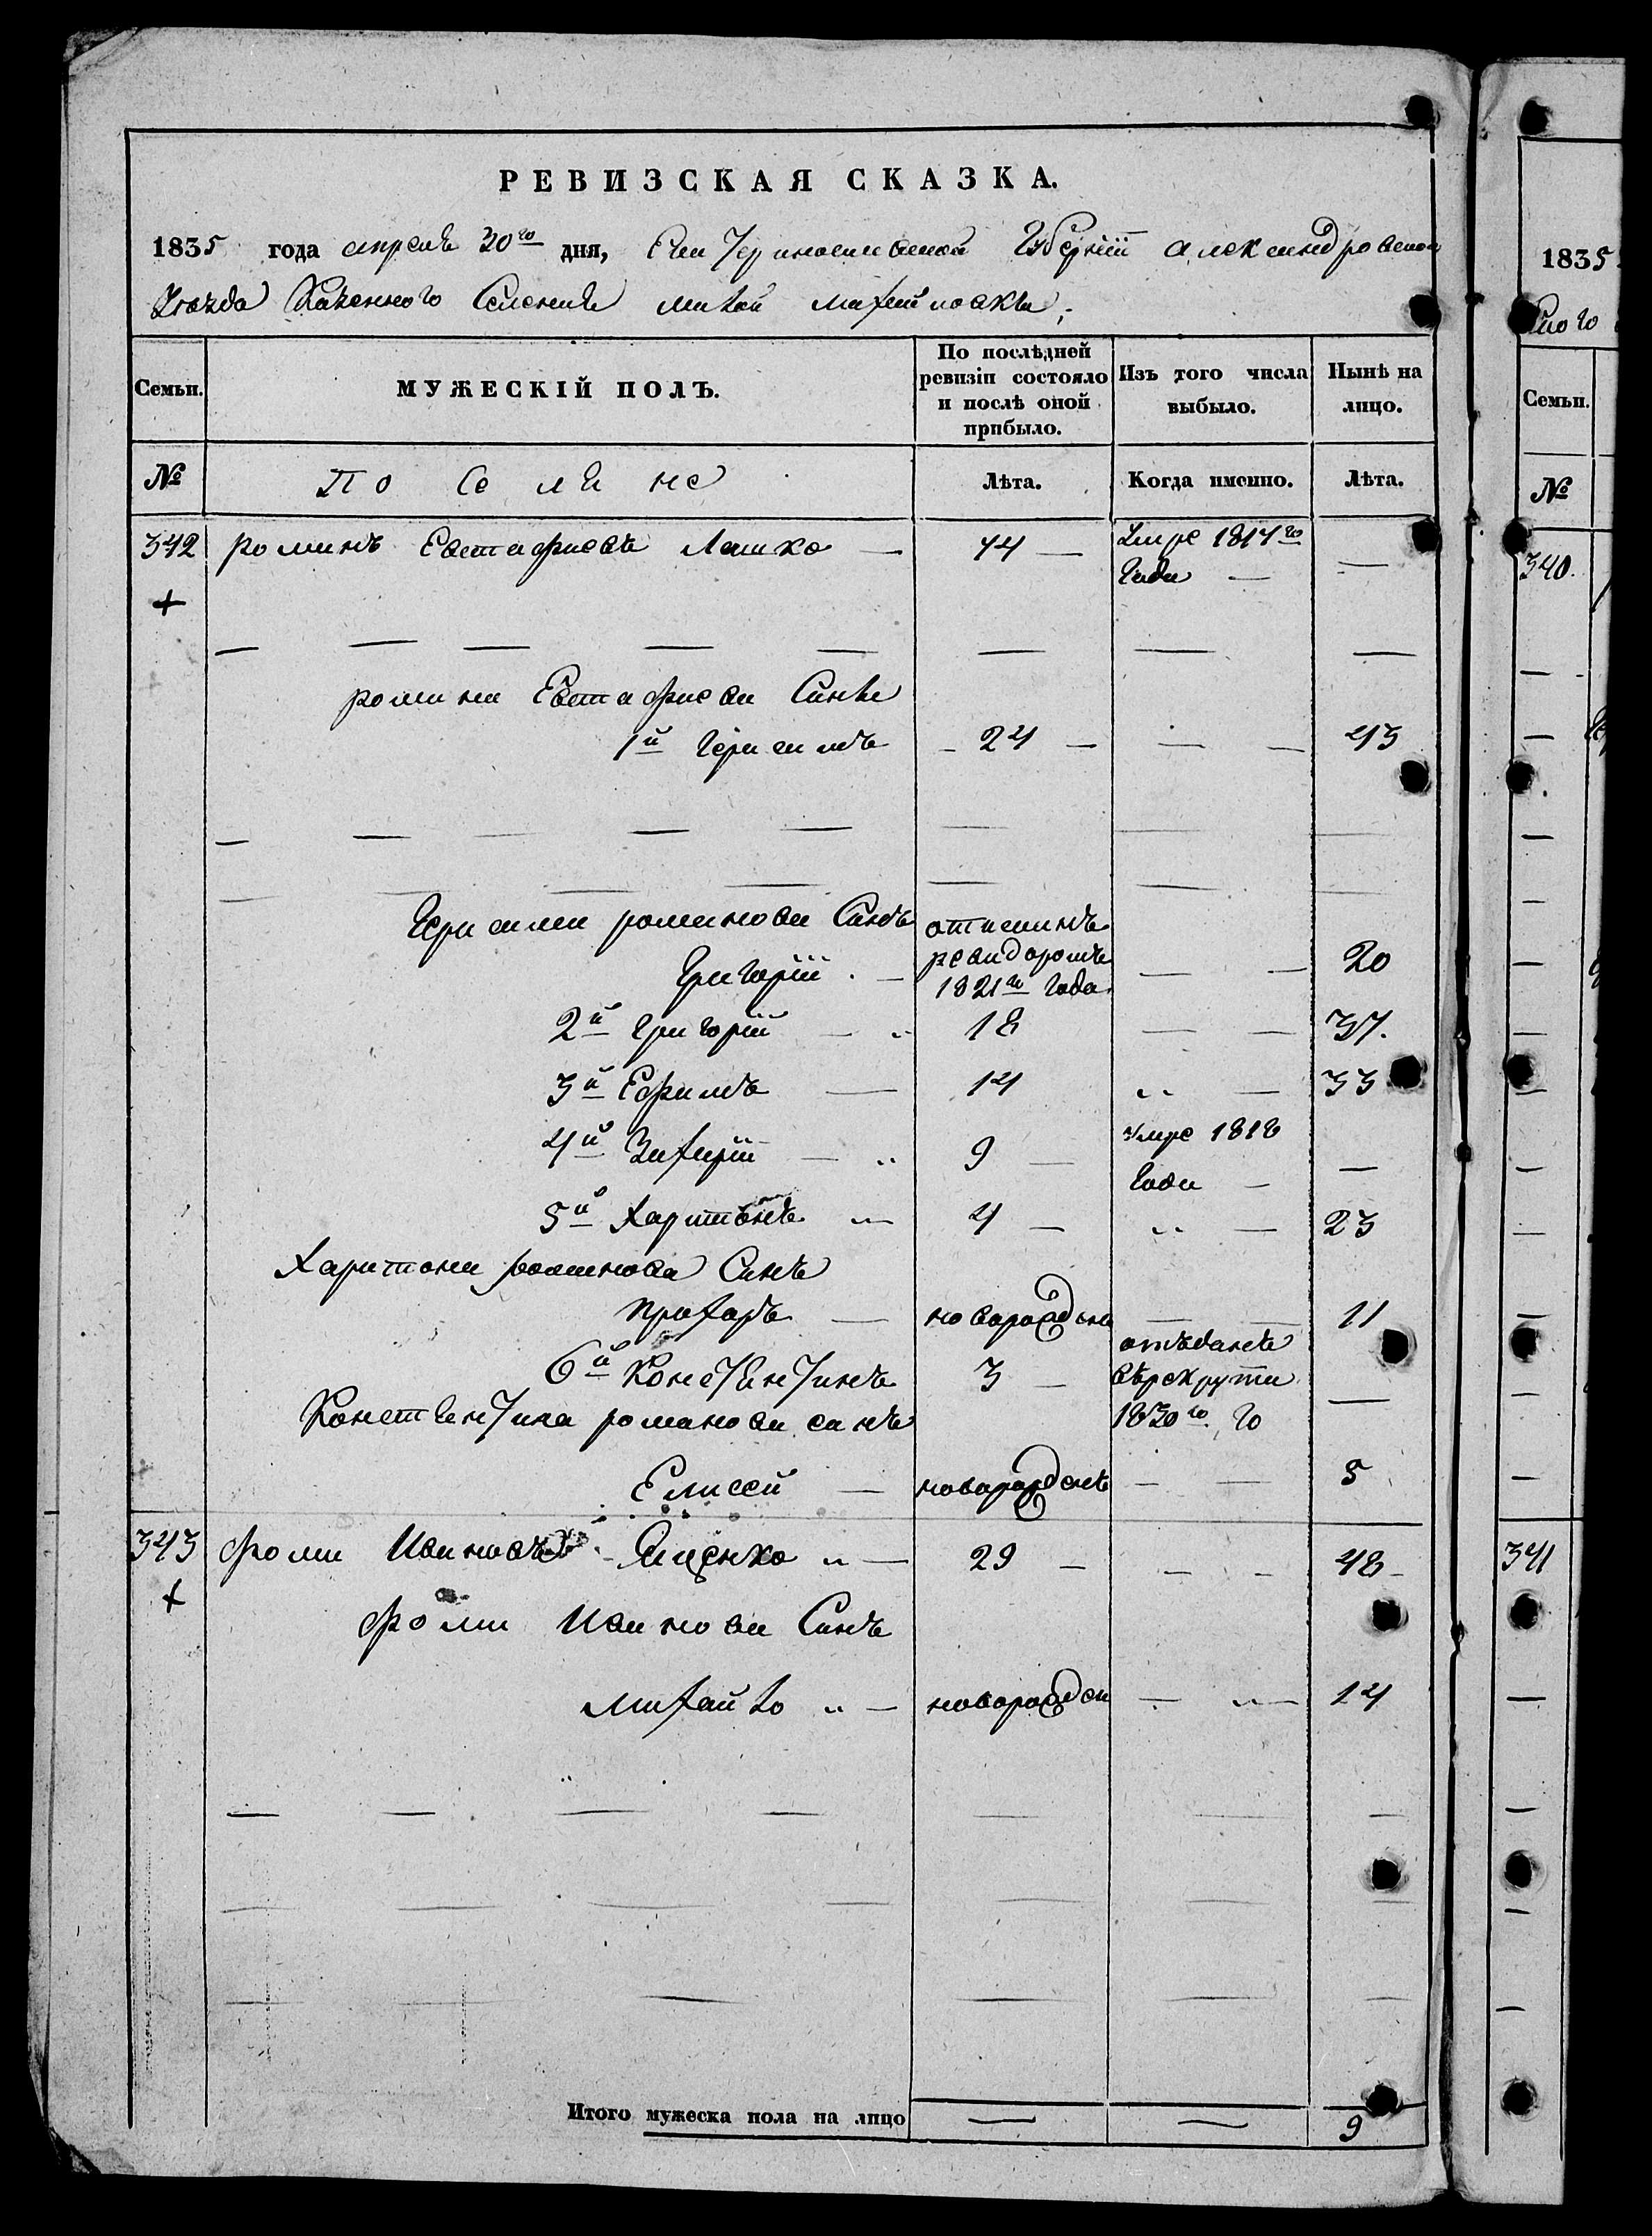 РЕВИЗСКАЯ СКАЗКА.
1835 года апреля 20го дня, Екатеринославской Губернiи александровского
Уезда Казенного Селения малой михайловки;
Семьи. МУЖЕСКІЙ ПОЛЪ. По послѣдней ревизіи состояло и послѣ оной прибыло. Изъ того числа выбыло. Нынѣ на лицо.
№ Поселяне Лѣта. Когда именно. Лѣта.
342 романъ Евстафиевъ Лашко — 44 — Умре 1817го года — —
+
романа Евстафиева Сини
1й Герасимъ — 24 — — — 43
Герасима романова Синъ
Григорiй — 1821го года — — 20
2й григорiй — 18 — — 37.
3й Ефимъ — 14 — 33
4й Захарiй — 9 — умре 1818 года — —
5й Харитонъ — 4 — — 23
Харитона романова Синъ
прохоръ — новорожденъ — — 11
6й Константинъ 3 — отъданъ върекрути 1830го го —
Константина романова синъ
Елисей — новорожденъ — — 5
343 фома Ивановъ Яценко — 29 — — — 48
+
фоми Иванова Синъ
михайло — новорожден — — 14
Итого мужеска пола на лицо — — 9
1835
Семьи.
№
340.
341